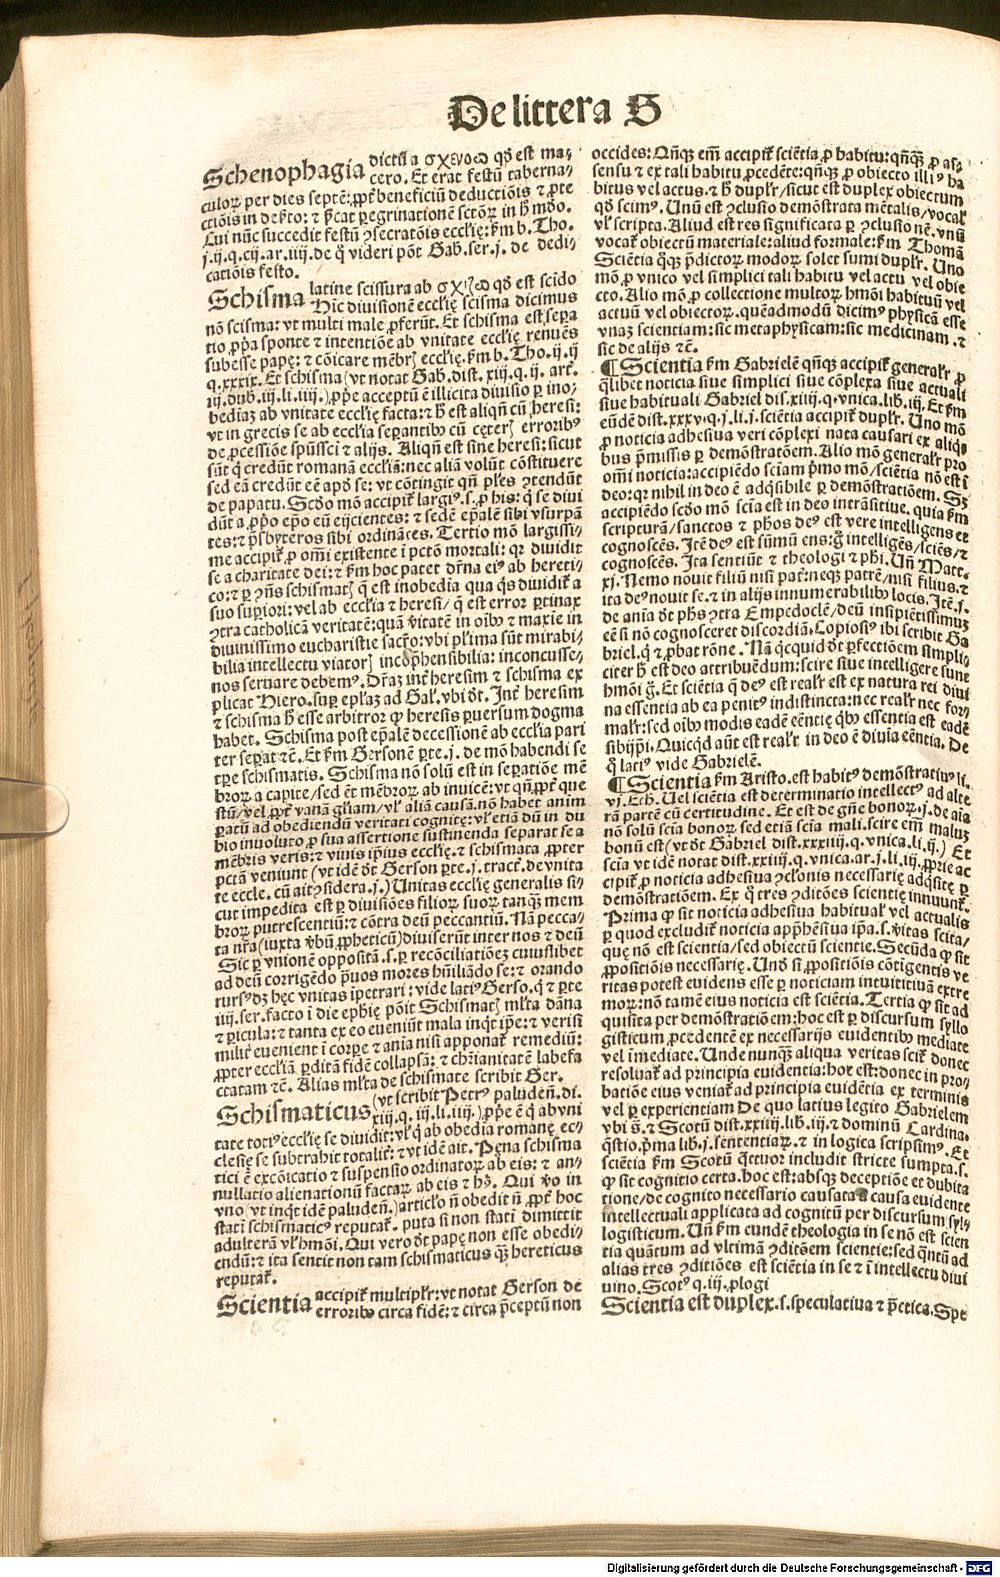 De littera S
Schenophagia dictũ a σχενοω qđ est ma⸗
cero. Et erat festũ taberna⸗
culoꝝ per dies septẽ: ꝓpt̃ beneficiũ deductiõis ⁊ ꝓte
ctiõis in deẜto: ⁊ ẜcat ꝑegrinationẽ sctõꝝ in ħ mũdo.
Cui nũc succedit festũ ꝯsecratõis eccłię: ẜm b. Tho.
j.ij.q.cij.ar.iiij. de q̃ videri põt Gab. ser. j. de dedi⸗
cationis festo.
Schisma latine scissura ab σχιζω qđ est scido
Hic divisionẽ eccłię scisma dicimus
nõ scisma: vt multi male ꝓferũt. Et schisma est sepa
tio ꝓpa sponte ⁊ intentiõe ab vnitate eccłię renuẽs
subesse papę: ⁊ cõicare mẽbrꝭ eccłię. ẜm b. Tho. ij.ij
q.xxxix. Et schisma (vt notat Gab. dist. xiij. q. ij. art.
iij. dub. iij. li. iiij.) ꝓpe acceptũ ẽ illicita diuisio ꝑ ino⸗
bediaꝫ ab vnitate eccłię facta: ⁊ ħ est aliqñ cũ heresi:
vt in grecis se ab eccłia seꝑantibꝰ cũ cęterꝭ erroribꝰ
de ꝓcessiõe spũssci ⁊ alijs. Aliqñ est sine heresi: sicut
sũt q̃ credũt romanã eccłiã: nec aliã volũt cõstituere
sed eã credũt eẽ apđ se: vt cõtingit qñ płes ꝯtendũt
de papatu. Scđo mõ accipit̃ largiꝰ. s. ꝓ his: q̃ se diui
dũt a ꝓpo epõ eũ eijcientes: ⁊ sedẽ epałẽ sibi vsurpã
tes: ⁊ p̃sbyteros sibi ordinãtes. Tertio mõ largissi⸗
me accipit̃ ꝓ om̃i existente i pctõ mortali: qꝛ diuidit
se a charitate dei: ⁊ ẜm hoc patet dr̃na eiꝰ ab hereti⸗
co: ⁊ ꝑ ꝯñs schismatꝭ q̃ est inobedia qua q̃s diuidit̃ a
suo suꝑiori: vel ab eccłia ⁊ heresi / q̃ est error ꝑtinax
ꝯtra catholicã veritatẽ: quã v̾itatẽ in oĩbꝰ ⁊ maxie in
diuinissimo eucharistie sacr̃o: vbi pl̾ima sũt mirabi⸗
bilia intellectu viatorꝭ incõp̃hensibilia: inconcusse⸗
nos seruare debemꝰ. Dr̃aꝫ int̾ heresim ⁊ schisma ex
plicat Hiero. suꝑ epłaꝫ ad Gal. vbi đt. Int̾ heresim
⁊ schisma ħ esse arbitror ꝙ heresis ꝑuersum dogma
habet. Schisma post epałẽ decessionẽ ab eccłia pari
ter seꝑat ⁊c̃. Et ẜm Gersonẽ ꝑte. j. de mõ habendi se
tꝑe schismatis. Schisma nõ solũ est in seꝑatiõe mẽ
broꝝ a capite / sed ẽt mẽbroꝝ ab inuicẽ: vt qñ ꝓpt̾ que
stũ / vel ꝓpt̾ vanã głiam / vł aliã causã. nõ habet anim
ꝑatũ ad obediendũ veritati cognitę: vł etiã dũ in du
bio inuoluto ꝓ sua assertione sustinenda separat se a
mẽbris veris: ⁊ viuis ip̃ius eccłię. ⁊ schismata ꝓpter
pctã veniunt (vt idẽ đt Gerson ꝑte. j. tract. de vnita
te eccle. cũ aitꝰ sidera. j.) Unitas eccłię generalis si⸗
cut impedita est ꝑ diuisiões filioꝝ suoꝝ tanqꝫ mem
broꝝ putrescentiũ: ⁊ cõtra deũ peccantiũ. Nã pecca⸗
ta nr̃a (iuxta v̾bũ ꝓpheticũ) diuiserũt inter nos ⁊ deũ
Sic ꝑ vnionẽ oppositã. s. ꝑ recõciliatiõeꝫ cuiuslibet
ad deũ corrigẽdo p̃uos mores hũiliãdo se: ⁊ orando
rursꝰdꝫ hęc vnitas ipetrari: vide latiꝰ Gerso. q̃ ⁊ ꝑte
iij. ser. facto i die ephię põit Schismatꝭ młta dãna
⁊ ꝑicula: ⁊ tanta ex eo eveniũt mala inqt̃ ip̃e: ⁊ verisi
milit̾ evenient i corꝑe ⁊ aniã nisi apponat̃ remediũ:
ꝓpter eccłiã ꝑditã fidẽ collapsã: ⁊ chr̃ianitatẽ labefa
ctatam ⁊c̃. Alias młta de schismate scribit Ger.
Schismaticus (vt scribit Petrꝰ paludeñ. di.
xiij. q. iij. li. iiij.) ꝓpe ẽ q̃ ab vni
tate totiꝰ eccłię se diuidit: vł q̃ ab obedia romanę ec⸗
clesię se subtrahit totalit̾: ⁊ vt idẽ ait. Pęna schisma
tici ẽ excõicatio ⁊ suspensio ordinatoꝝ ab eis: ⁊ an⸗
nullatio alienationũ factaꝝ ab eis ⁊ hꝫ. Qui v̾o in
vno (vt inqt̃ idẽ paludeñ.) articło ñ obedit ñ ꝓpt̾ hoc
statĩ schismaticꝰ reputat̃. puta si non statĩ dimittit
adulterã vł hmõi. Qui vero đt papę non esse obedi⸗
endũ: ⁊ ita sentit non tam schismaticus qꝫ hereticus
reputat̃.
Scientia accipit̃ multipłr: vt notat Gerson de
erroribꝰ circa fidẽ: ⁊ circa p̃ceptũ non
occides: Qñqꝫ em̃ accipit̃ sciẽtia ꝓ habitu: qñqꝫ ꝓ as⸗
sensu ⁊ ex tali habitu ꝓcedẽte: qñqꝫ ꝓ obiecto illiꝰ ha
bitus vel actus. ⁊ ħ dupłr / sicut est duplex obiectum
qđ scimꝰ. Unũ est ꝯclusio demõstrata mẽtalis / vocał
vł scripta. Aliud est res significata ꝑ ꝯclusionẽ. vnũ
vocat̃ obiectũ materiale: aliud formale: ẜm Thomã
Sciẽtia q̃qꝫ p̃dictoꝝ modoꝝ solet sumi dupłr. Uno
mõ ꝓ vnico vel simplici tali habitu vel actu vel obie
cto. Alio mõ ꝓ collectione multoꝝ hmõi habituũ vel
actuũ vel obiectoꝝ. quẽadmodũ dicimꝰ physicã esse
vnaꝫ scientiam: sic metaphysicam: sic medicinam. ⁊
sic de alijs ⁊c̃.
¶ Scientia ẜm Gabrielẽ qñqꝫ accipit̃ generałr ꝓ
q̃libet noticia siue simplici siue cõplexa siue actuali
siue habituali Gabriel dis. xiiij. q. vnica. lib. iij. Et ẜm
eũdẽ dist. xxxv. q. j. li. j. sciẽtia accipit̃ dupłr. Uno mõ
ꝓ noticia adhesiua veri cõplexi nata causari ex aliqͥ
bus p̃missis ꝑ demõstratõem. Alio mõ generałr pro
om̃i noticia: accipiẽdo sciam p̃mo mõ / sciẽtia nõ est i
deo: qꝛ nihil in deo ẽ adq̃sibile ꝑ demõstratiõem. Sꝫ
accipiẽdo scđo mõ scia est in deo intrãsitiue. quia ẜm
scripturã / sanctos ⁊ phõs deꝰ est vere intelligens et
cognoscẽs. Itẽ deꝰ est sũmũ ens: g̃ intelligẽs / sciẽs / ⁊
cognoscẽs. Ita sentiũt ⁊ theologi ⁊ phi. Uñ Matt.
xj. Nemo novit filiũ nisi pat̾: neqꝫ patrẽ / nisi filius. ⁊
ita deꝰ novit se. ⁊ in alijs innumerabilibꝰ locis. Itẽ. j.
de aniã đt phs ꝯtra Empedoclẽ / deũ insipiẽtissimuꝫ
eẽ si nõ cognosceret discordiã. Copiosiꝰ ibi scribit Ga
briel. q̃ ⁊ ꝓbat rõne. Nã q̃cquid đt ꝑfectiõem simpli⸗
citer ħ est deo attribuẽdum: scire siue intelligere sunt
hmõi g̃. Et sciẽtia q̃ deꝰ est reałr est ex natura rei diui
na essentia ab ea penitꝰ indistincta: nec reałr nec for⸗
małr: sed oĩbꝰ modis eadẽ eẽntię q̃bꝰ essentia est eadẽ
sibijp̃i. Quicq̃d aũt est reałr in deo ẽ diuĩa eẽntia. De
q̃ latiꝰ vide Gabrielẽ.
¶ Scientia ẜm Aristo. est habitꝰ demõstratiuꝰ li.
vj. Eth. Uel sciẽtia est determinatio intellectꝰ ad alte
rã partẽ cũ certitudine. Et est de gñe bonoꝝ. j. de aĩa
nõ solũ scia bonoꝝ sed etiã scia mali. scire em̃ maluꝫ
bonũ est (vt đt Gabriel dist. xxxiiij. q. vnica. li. ij.) Et
scia vt idẽ notat dist. xxiiij. q. vnica. ar. j. li. iij. ꝓprie ac
cipit̃ ꝓ noticia adhesiua ꝯcłonis necessarię adq̃site ꝑ
demõstratiõem. Ex q̃ tres ꝯditões scientię innuunt̃.
Prima ꝙ sit noticia adhesiua habituał vel actualis
ꝑ quod excludit̃ noticia app̃hẽsiua ip̃a. s. v̾itas scita /
quę nõ est scientia / sed obiectũ scientie. Secũda ꝙ sit
ꝓpositiõis necessarię. Unđ si ꝓpositiõis cõtigentis ve
ritas potest evidens esse ꝑ noticiam intuitiuã extre
moꝝ: nõ tamẽ eius noticia est sciẽtia. Tertia ꝙ sit ad
quisita per demõstratiõem: hoc est ꝑ discursum syllo
gisticum ꝓcedentẽ ex necessarijs euidentibꝰ mediate
vel imediate. Unde nunqꝫ aliqua veritas scit̃ donec
resoluat̃ ad principia euidentia: hoc est: donec in pro⸗
batiõe eius veniat̃ ad principia euidẽtia ex terminis
vel ꝑ experientiam De quo latius legito Gabrielem
vbi s̃. ⁊ Scotũ dist. xxiiij. lib. iij. ⁊ dominũ Cardina.
q̃stio. p̃ma lib. j. sententiaꝝ. ⁊ in logica scripsimꝰ. Et
sciẽtia ẜm Scotũ q̃ttuor includit stricte sumpta. s.
ꝙ sit cognitio certa. hoc est: absqꝫ deceptiõe et dubita
tione / de cognito necessario causata a causa euidente
intellectuali applicata ad cognitũ per discursum syl⸗
logisticum. Uñ ẜm eundẽ theologia in se nõ est scien
tia quãtum ad vltimã ꝯditõem scientie: sed q̃ntũ ad
alias tres ꝯditiões est sciẽtia in se ⁊ i intellectu diui
uino. Scotꝰ q. iij. ꝓlogi
Scientia est duplex. s. speculatiua ⁊ p̃ctica. Spe
Digitalisierung gefördert durch die Deutsche Forschungsgemeinschaft - DFG